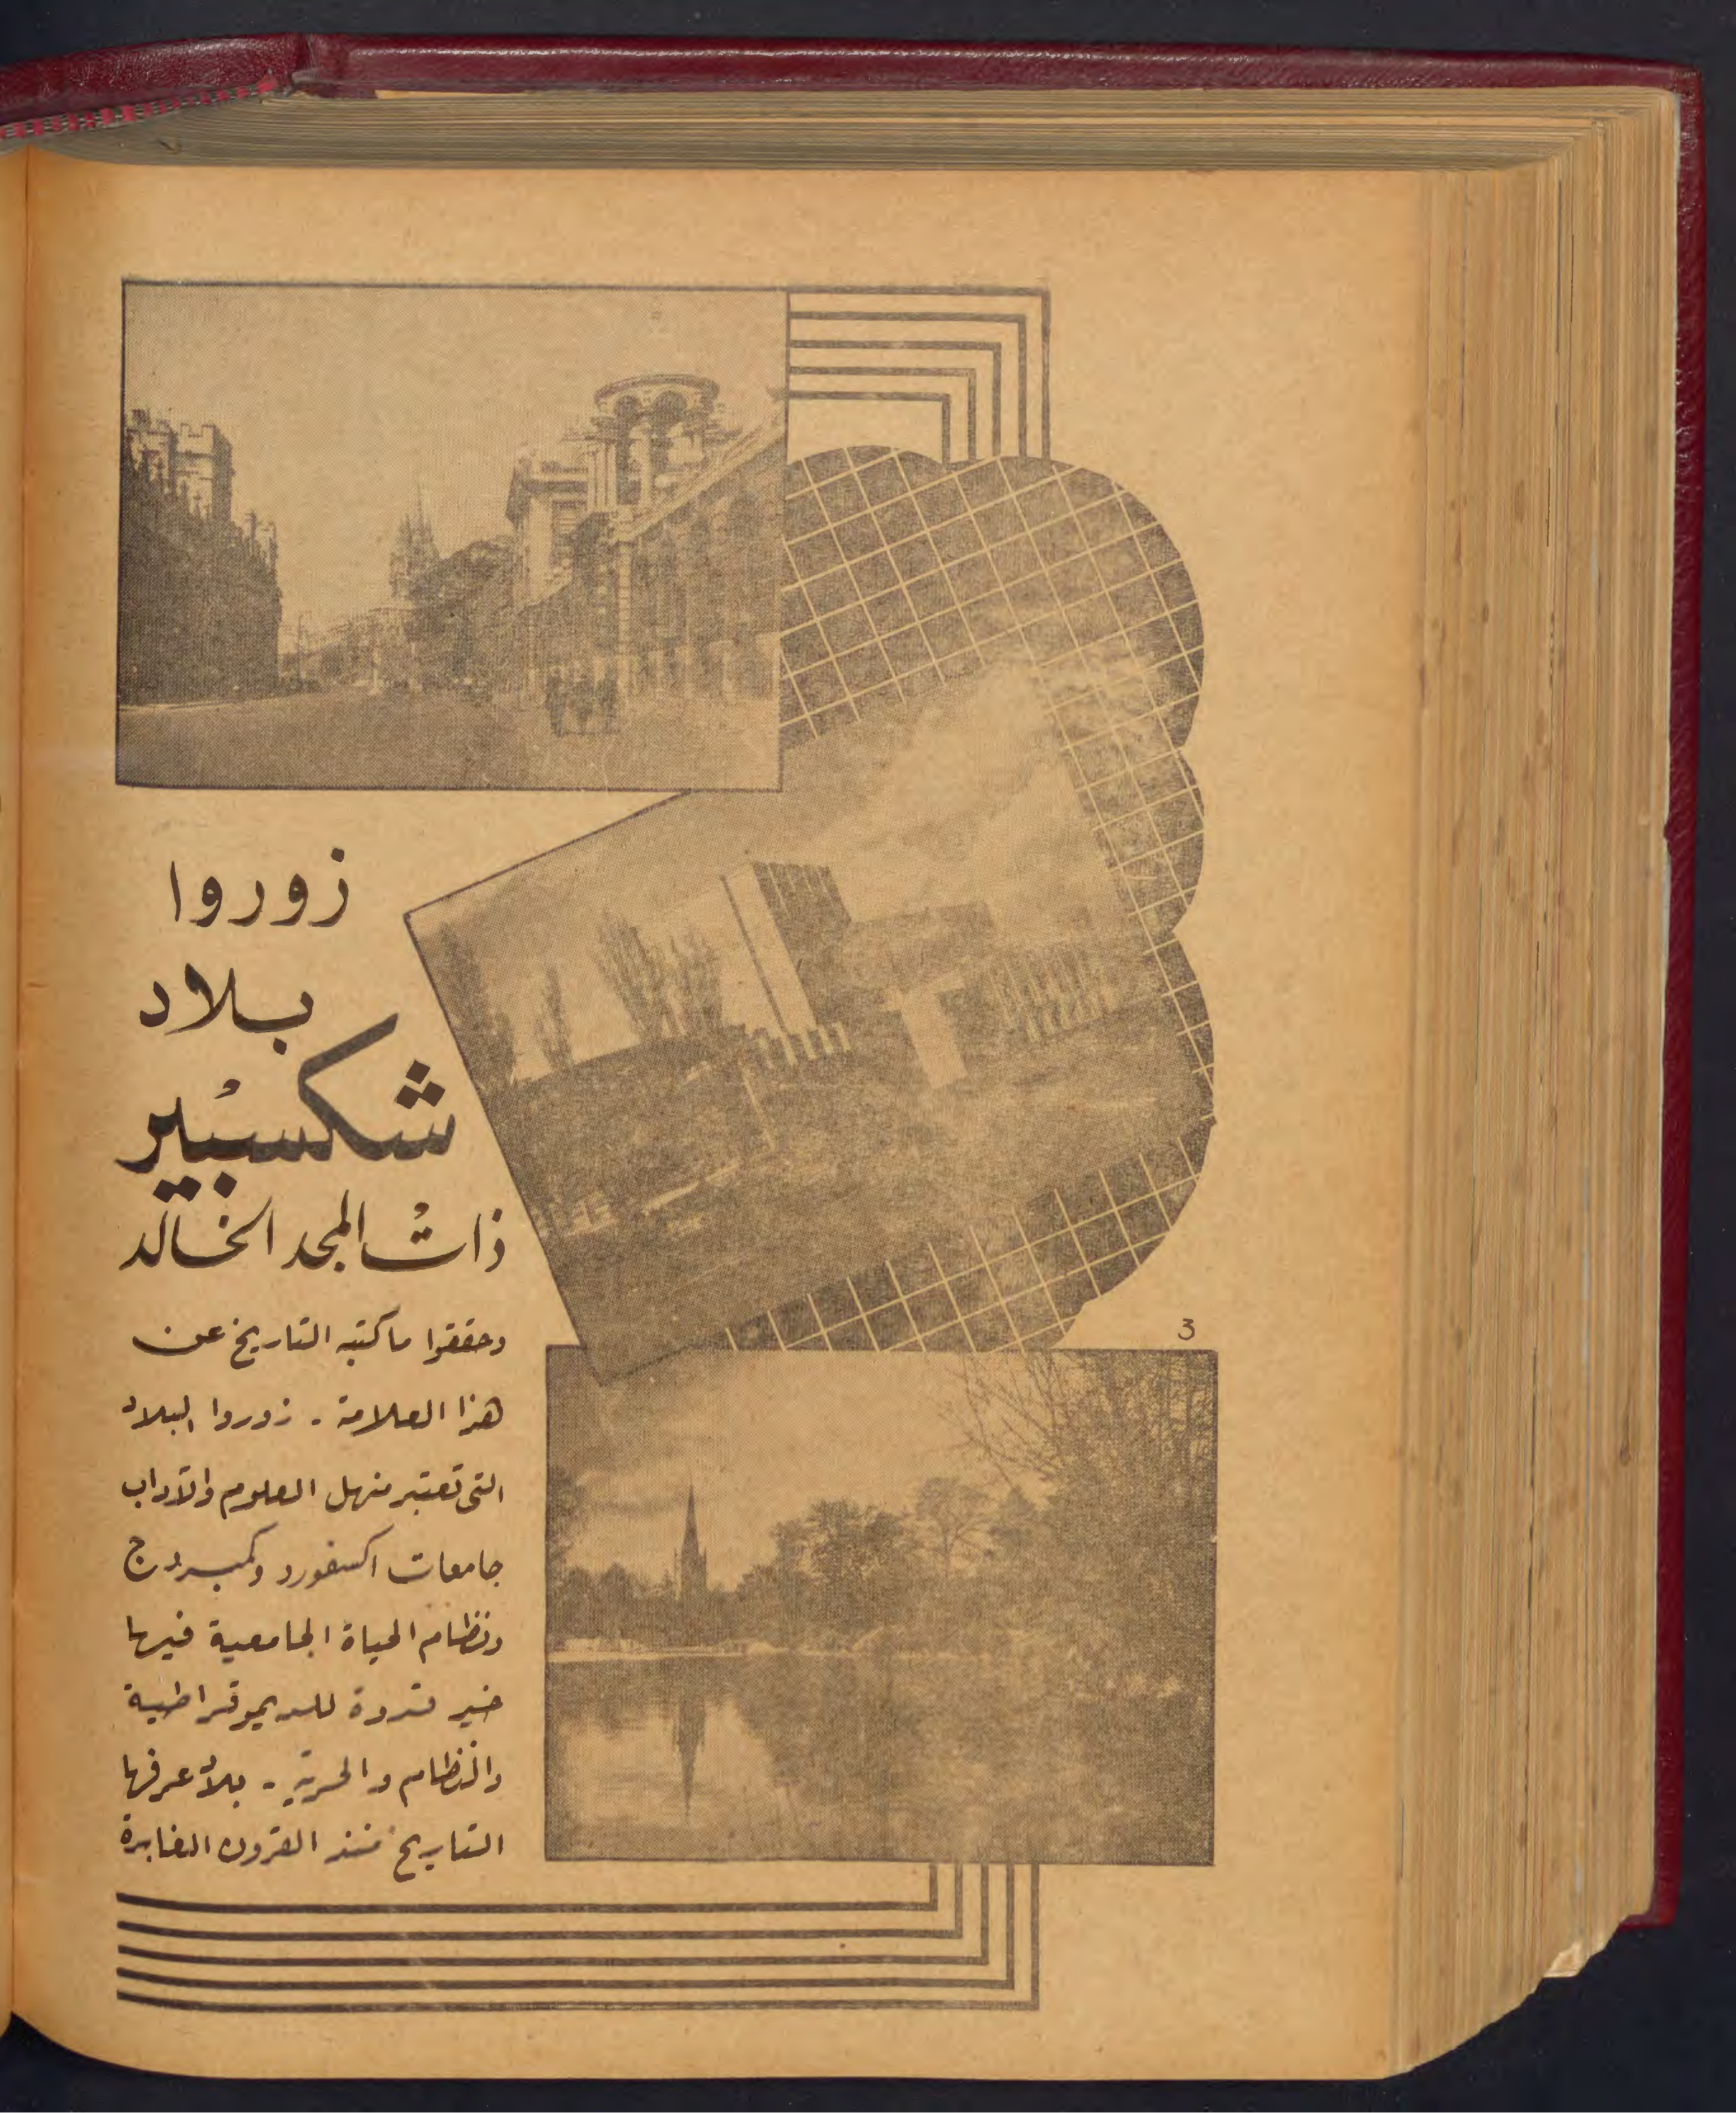 زوروا
بلاد
شكسبير
ذات المجد الخالد
وحققوا ما كتبه التاريخ عن
هذا العلامة - زوروا البلاد
التى تعتبر منهل العلوم والآداب
جامعات اكسفورد وكمبردج
ونظام الحياة الجامعية فيها
خير قدوة للديموقراطية
والنظام والحرية - بلاد عرفها
التاريخ منذ القرون الغابرة
3